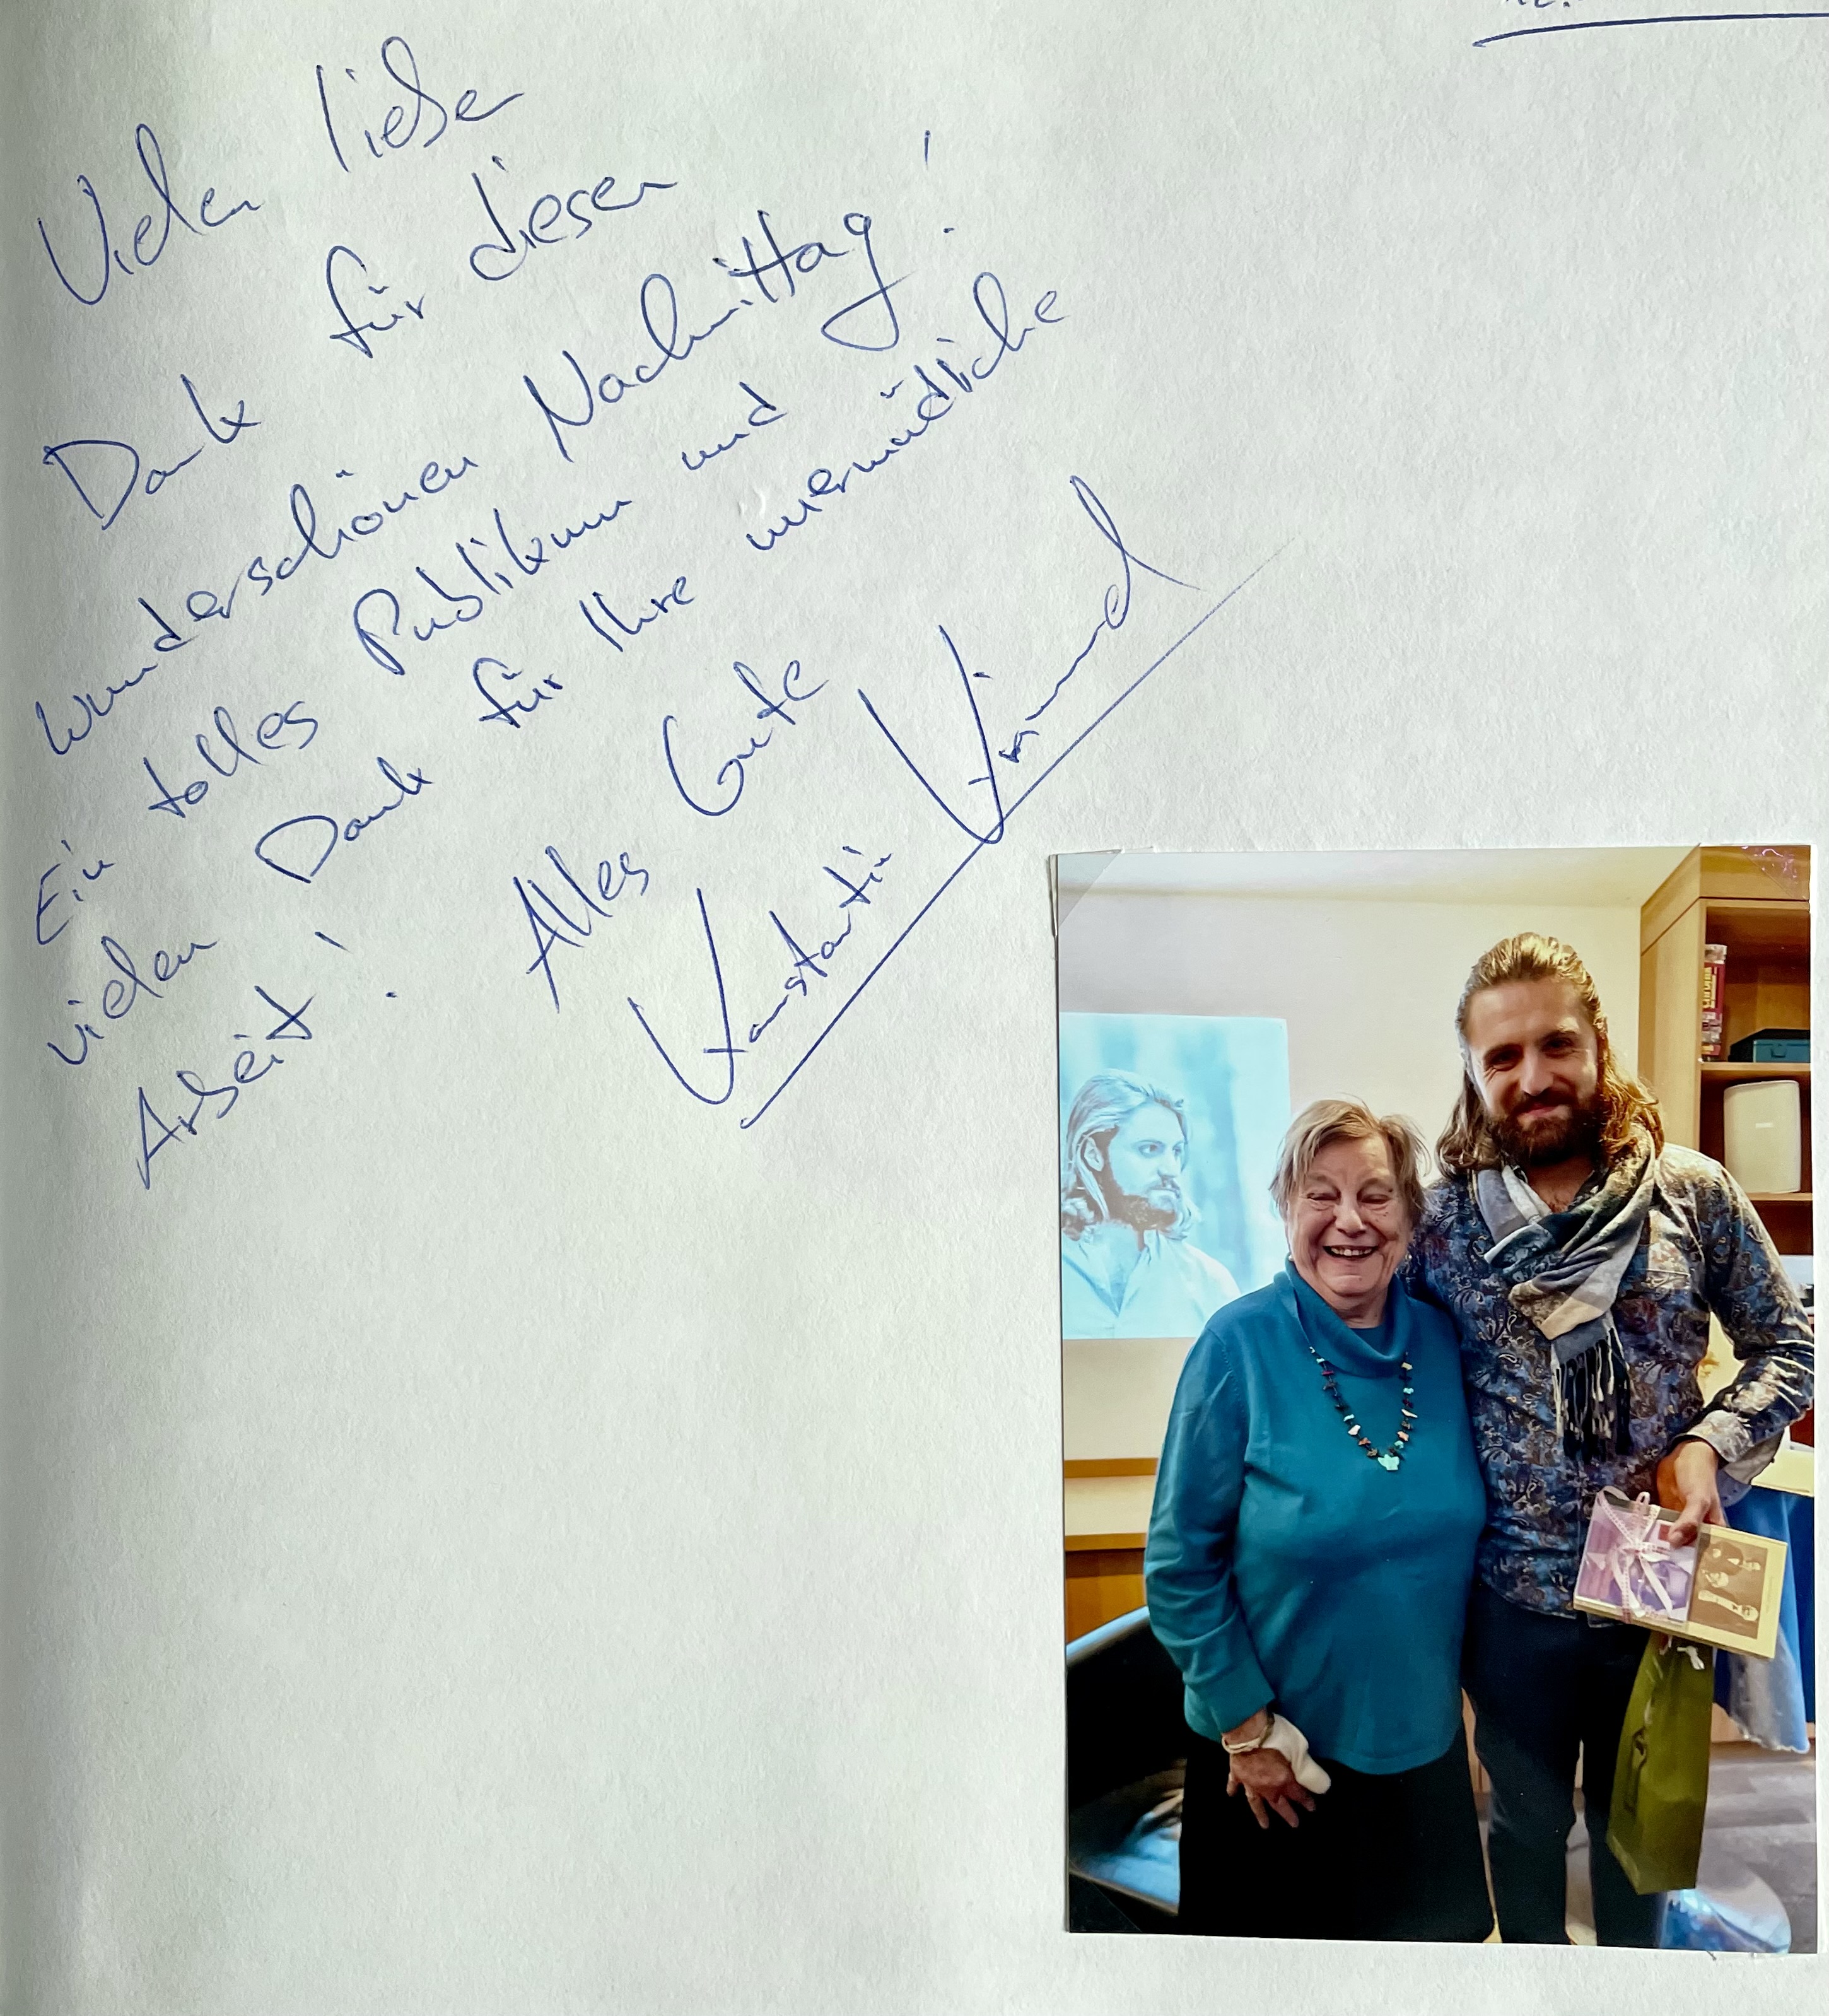 Vielen liebe
Dank für diesen
wunderschönen Nachmittag!
Ein tolles Publikum und
vielen Dank für Ihre unermüdliche
Arbeit!
Alles Gute
Konstantin